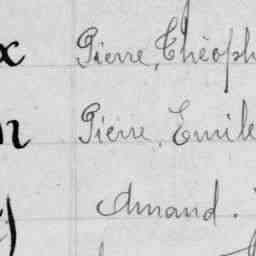 x Pierre, Théoph
n Pierre, Emile
Amand.